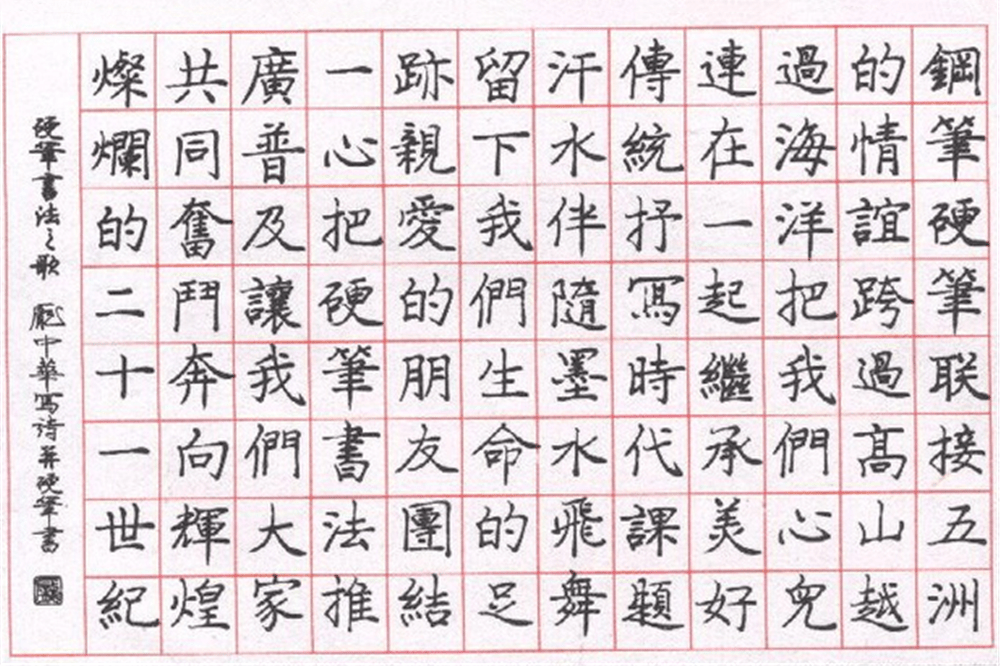 鋼筆硬筆联接五洲
的情誼跨過高山越
過海洋把我們心兒
連在一起繼承美好
傳統抒寫時代課題
汗水伴隨墨水飛舞
留下我們生命的足
跡親愛的朋友團結
一心把硬筆書法推
廣普及讓我們大家
共同奮鬥奔向輝煌
燦爛的二十一世紀
硬筆書法之歌 龐中華寫詩并硬筆書